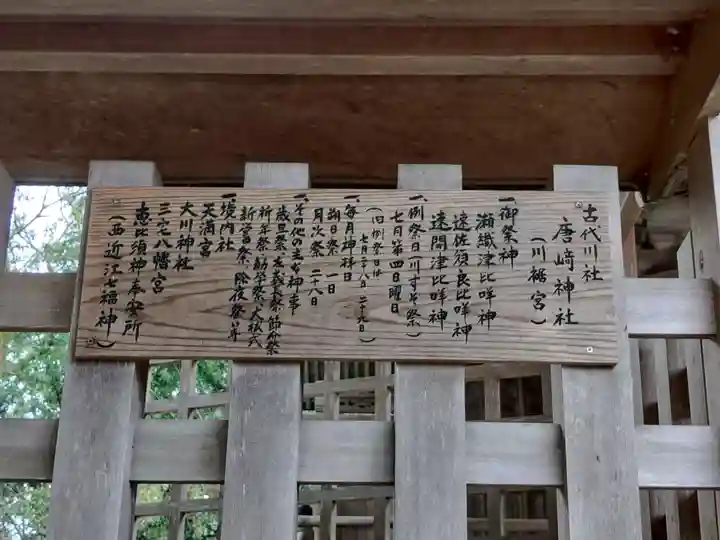 古代川社
唐﨑神社
（川裾宮）
一、御祭神
瀬織津比咩神
速佐須良比咩神
速開津比咩神
一、例祭日（川すそ祭）
七月第四日曜日
（旧例祭日は
七月二十八日、二十九日）
一、毎月神拝日
朔日祭 一日
月次祭 二十八日
一、その他の主な神事
歳旦祭、左義長祭、節分祭
祈年祭、勧学祭、大祓式
新嘗祭、除夜祭等
一、境内社
天満宮
大川神社
三宅八幡宮
恵比須神奉安所
（西近江七福神）